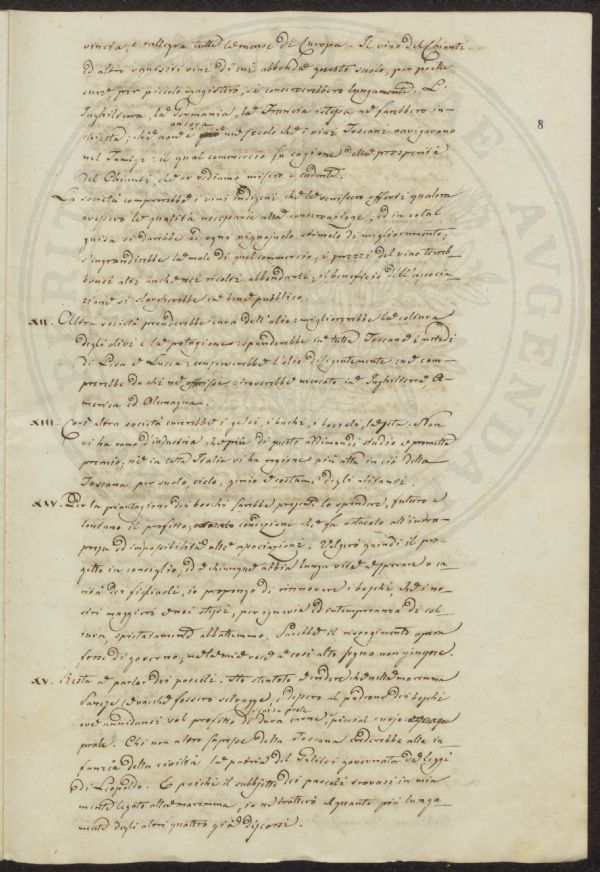 vincia, e rallegra tutte le mense di Europa. Il vino del Chianti
ed altri squisiti vini di cui abbonda questo suolo, per poche
cure per piccolo magistero, si conserverebbero lungamente. L'
Inghilterra, la Germania, la Francia istessa ne farebbero in-
chiesta; chè non è ancora un secolo che i vini Toscani navigavano
8
nel Tamigi: il qual commercio fu cagione della prosperità
del Chianti, che or vediamo misero e cadente.
La società comprerebbe i vini indigeni che le venissero offerti qualora
avessero le qualità necessarie alla conservazione; ed in cotal
guisa si darebbe ad ogni vignajuolo stimolo di miglioramento;
s'ingrandirebbe la mole di quel commercio, i prezzi del vino sareb-
bonsi alti anche nei ricolti abbondanti; il beneficio dell'associa-
zione si slargherebbe in bene pubblico.
XII. Altra società prenderebbe cura dell'olio: migliorerebbe la coltura
degli olivi e la potagione: spanderebbe in tutta Toscana i metodi
di Pisa e Lucca: comporrebbe l'olio diligentemente: ne com-
prerebbe da chi ne offrisse: troverebbe mercato in Inghilterra, A-
merica ed Alemagna.
XIII. Così altra società curerebbe i gelsi, i bachi, i bozzoli, la seta. Non
vi ha ramo d'industria che più di questo dimandi studio e prometta
premio; nè in tutta Italia vi ha regione più atta in ciò della
Toscana per suolo, cielo, genio e costume degli abitanti.
XIV. Per la piantagione dei boschi sarebbe presente lo spendere, futuro e
lontano il profitto, condizione che fa ostacolo all'intra-
presa ed impossibilità alle associazioni. Volgerò quindi il pro-
getto in consiglio, ed a chiunque abbia lunga vita a sperare o ca-
rità dei figliuoli, io propongo di rinnovare i boschi che i no-
stri maggiori e noi stessi, per ignavia ed intemperanza di col-
tura, spietatamente abbattemmo. Sarebbe il risorgimento opera
forse di governo; ma la mia voce a così alto segno non giugne.
XV. Resta a parlar dei pascoli. Ho stentato a credere che nella maremma
Sanese le vacche fossero selvagge, e dessero al padrone dei boschi
ove annidansi sol profitto di scarsa prole dura carne, picciol cuojo
prole. Chi non altro sapesse della Toscana crederebbe alla in-
fanzia della civiltà la patria del Galilei governata da leggi
di Leopoldo. E poichè il subbjetto dei pascoli trovasi in mia
mente legato alla maremma, io ne tratterò alquanto più lunga-
mente degli altri quattro già discorsi.